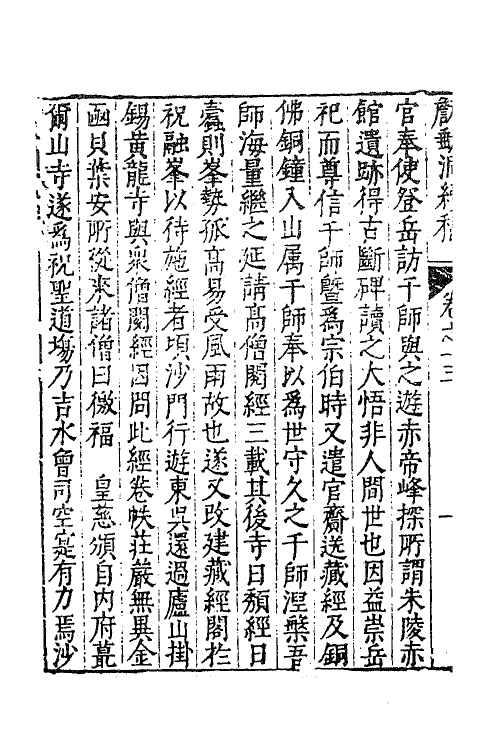 官奉使登岳訪千師與之遊赤帝峰探所謂朱陵赤
館遺跡得古斷碑讀之大悟非人間世也因益崇岳
祀而尊信千師曁為宗伯時又遣官齎送藏經及銅
佛銅鐘入山属千師奉以為世守久之千師涅槃吾
師海量繼之延請高僧閱經三載其後寺日頹經日
蠹則峯勢孤高易受風雨故也遂又改建藏經閣於
祝融峯以待施經者頃沙門行遊東吳還過廬山掛
錫黃龍寺與衆僧閱經因問此經卷帙莊嚴無異金
函貝葉安所從来諸僧曰徼福 皇慈頒自内府蕞
爾山寺遂為祝聖道場乃吉水曾司空寔有力焉沙